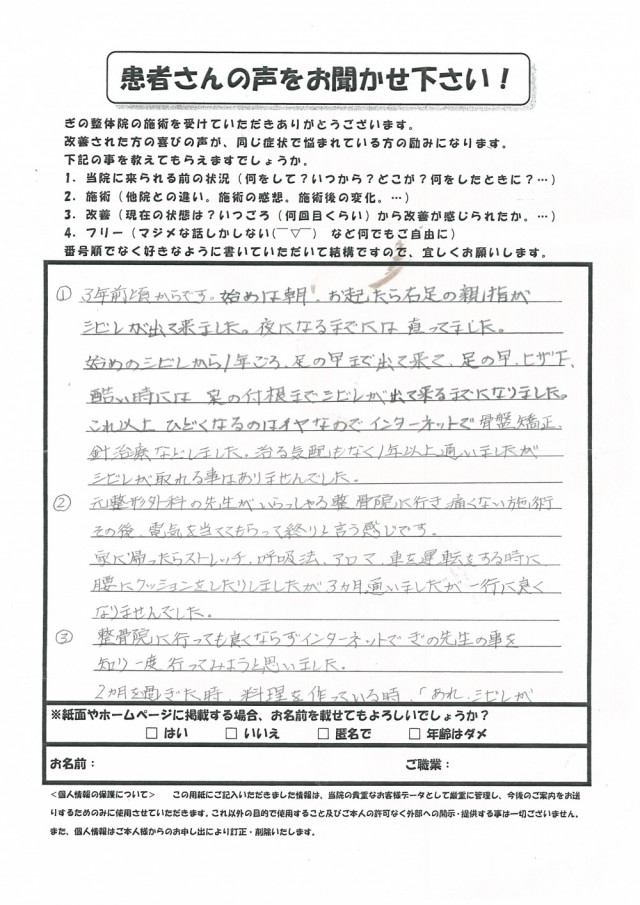 患者さんの声をお聞かせ下さい！
ぎの整体院の施術を受けていただきありがとうございます。
改善された方の喜びの声が、同じ症状で悩まれている方の励みになります。
下記の事を教えてもらえますでしょうか。
1．当院に来られる前の状況（何をして？いつから？どこが？何をしたときに？…）
2．施術（他院との違い。施術の感想。施術後の変化。…）
3．改善（現在の状態は？いつごろ（何回目くらい）から改善が感じられたか。…）
4．フリー（マジメな話しかしない(￣▽￣)　など何でもご自由に）
番号順でなく好きなように書いていただいて結構ですので、宜しくお願いします。
① 3年前頃からです。始めは朝、お起したら右足の親指が
シビレが出て来ました。夜になるまでには直ってました。
始めのシビレから1年ごろ、足の甲まで出て来て、足の甲、ヒザ下、
酷い時には 足の付根までシビレが出て来るまでになりました。
これ以上 ひどくなるのはイヤなので インターネットで骨盤矯正、
針治療などしました。治る気配もなく1年以上通いましたが
シビレが取れる事はありませんでした。
② 元整形外科の先生がいらっしゃる整骨院に行き痛くない施術
その後、電気を当ててもらって終りと言う感じです。
家に帰ったらストレッチ、呼吸法、アロマ、車を運転をする時に
腰にクッションをしたりしましたが3ヵ月通いましたが一行に良く
なりませんでした。
③ 整骨院に行っても良くならずインターネットでぎの先生の事を
知り一度行ってみようと思いました。
2ヵ月を過ぎた時、料理を作っている時、「あれ、シビレが
※紙面やホームページに掲載する場合、お名前を載せてもよろしいでしょうか？
□ はい　□ いいえ　□ 匿名で　□ 年齢はダメ
お名前：　ご職業：
＜個人情報の保護について＞　この用紙にご記入いただきました情報は、当院の貴重なお客様データとして厳重に管理し、今後のご案内をお送
りするためのみに使用させていただきます。これ以外の目的で使用すること及びご本人の許可なく外部への開示・提供する事は一切ございません。
また、個人情報はご本人様からのお申し出により訂正・削除いたします。